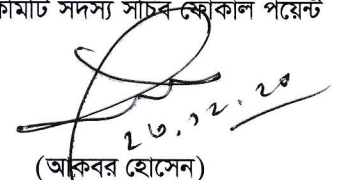 কমিটি সদস্য সচিব ফোকাল পয়েন্ট
২৩.১২.২০
(আকবর হোসেন)